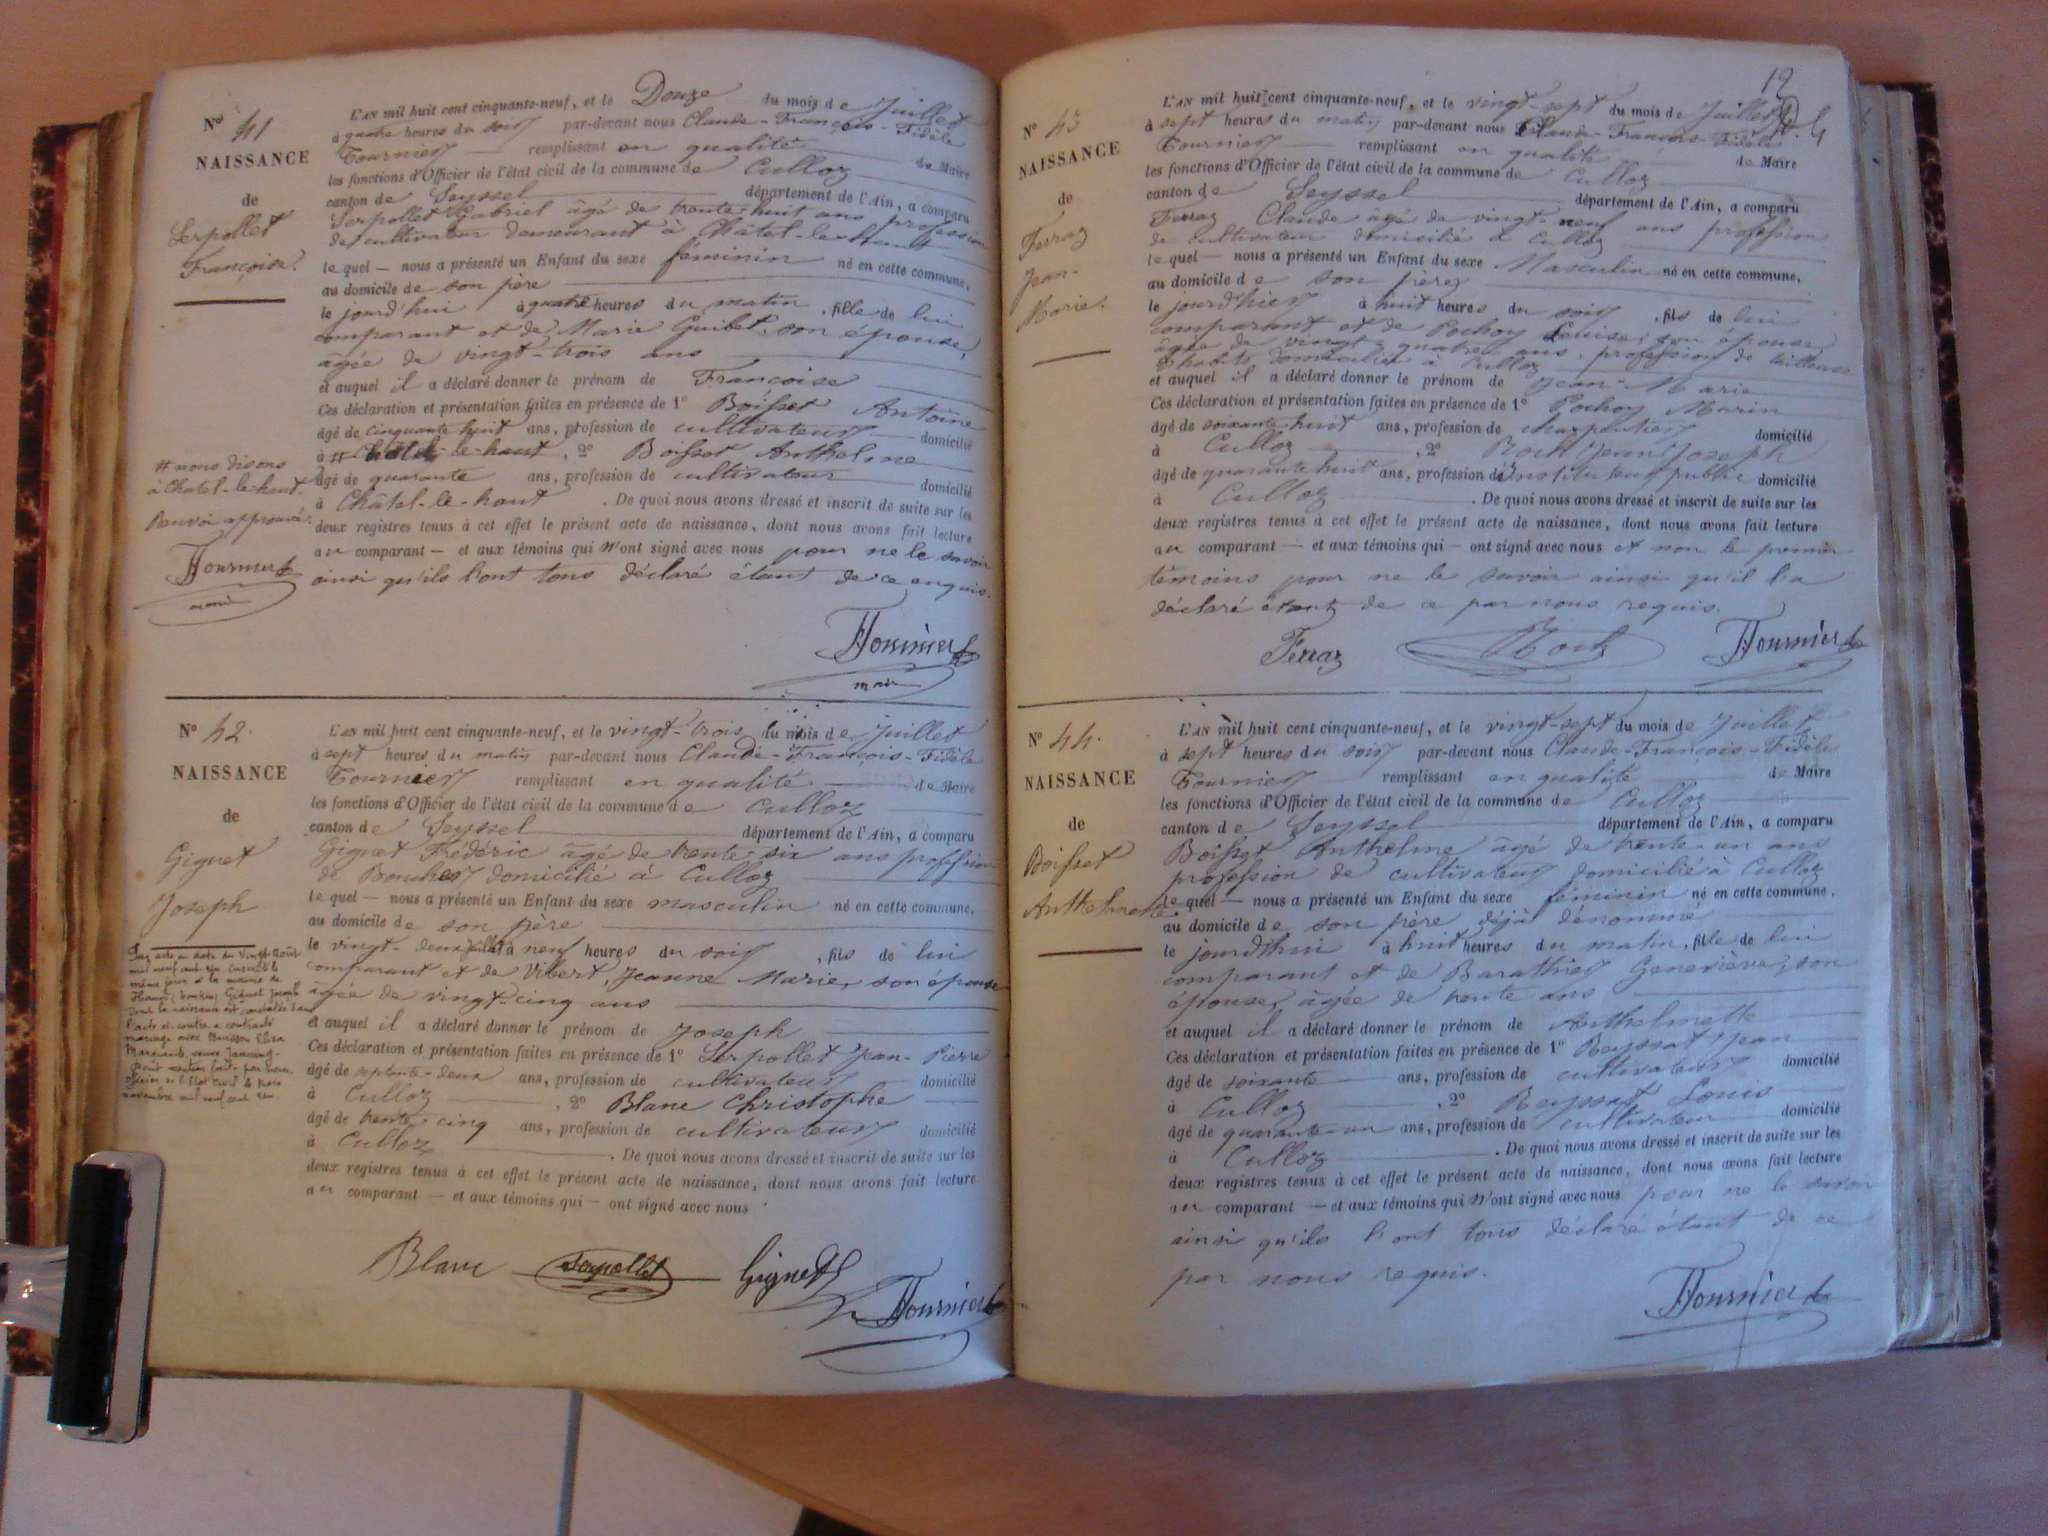 N° 41
NAISSANCE
de
Serpollet
Françoise.
L'AN mil huit cent cinquante-neuf, et le Douze du mois de Juillet
à quatre heures du soir par-devant nous Claude-François-Fidèle
Fournier remplissant en qualité de Maire
les fonctions d'Officier de l'état civil de la commune de Culloz
canton de Seyssel département de l'Ain, a comparu
Serpollet Gabriel âgé de trente huit ans profession
de cultivateur demeurant à Châtel-le-haut
le quel — nous a présenté un Enfant du sexe féminin né en cette commune,
au domicile de son père
le jourd'hui à quatre heures du matin, fille de lui
comparant et de Marie Guibet, son épouse,
âgée de vingt-trois ans
et auquel il a déclaré donner le prénom de Françoise
Ces déclaration et présentation faites en présence de 1° Boisset Antoine
âgé de cinquante huit ans, profession de cultivateur domicilié
à # Châtel-le-haut, 2° Boisset Anthelme
âgé de quarante ans, profession de cultivateur domicilié
à Châtel-le-haut. De quoi nous avons dressé et inscrit de suite sur les
deux registres tenus à cet effet le présent acte de naissance, dont nous avons fait lecture
au comparant — et aux témoins qui n'ont signé avec nous pour ne le savoir
ainsi qu'ils l'ont tous déclaré étant de ce enquis.
# nous disons
à Chatel-le-haut.
Renvoi approuvé.
Fournier
maire
Fournier
maire
N° 42.
NAISSANCE
de
Giguet
Joseph
L'AN mil huit cent cinquante-neuf, et le vingt-trois du mois de Juillet
à sept heures du matin par-devant nous Claude-François-Fidèle
Fournier remplissant en qualité de Maire
les fonctions d'Officier de l'état civil de la commune de Culloz
canton de Seyssel département de l'Ain, a comparu
Giguet Frédéric âgé de trente-six ans profession
de Boucher domicilié à Culloz
le quel — nous a présenté un Enfant du sexe masculin né en cette commune,
au domicile de son père
le vingt-deux Juillet à neuf heures du soir, fils de lui
comparant et de Vibert, Jeanne Marie, son épouse
âgée de vingt-cinq ans
et auquel il a déclaré donner le prénom de Joseph
Ces déclaration et présentation faites en présence de 1° Serpollet Jean-Pierre
âgé de septante-deux ans, profession de cultivateur domicilié
à Culloz, 2° Blanc Christophe
âgé de trente cinq ans, profession de cultivateur domicilié
à Culloz. De quoi nous avons dressé et inscrit de suite sur les
deux registres tenus à cet effet le présent acte de naissance, dont nous avons fait lecture
au comparant — et aux témoins qui — ont signé avec nous
Par acte en date du vingt Août
mil neuf cent
même jour à la mairie de
Giguet Joseph
dont la naissance est constatée dans
l'acte ci-contre a contracté
mariage avec
veuve
officier de l'Etat Civil le trois
novembre mil neuf cent
Blanc Serpollet Giguet
Fournier
12
N° 43
NAISSANCE
de
Ferraz
Jean-
Marie.
L'AN mil huit cent cinquante-neuf, et le vingt-sept du mois de Juillet
à sept heures du matin par-devant nous Claude-François-Fidèle
Fournier remplissant en qualité de Maire
les fonctions d'Officier de l'état civil de la commune de Culloz
canton de Seyssel département de l'Ain, a comparu
Ferraz Claude âgé de vingt-neuf ans profession
de cultivateur domicilié à Culloz
le quel — nous a présenté un Enfant du sexe Masculin né en cette commune,
au domicile de son père
le jourd'hier à huit heures du soir, fils de lui
comparant et de Pochoy Louise, son épouse,
âgée de vingt-quatre ans, profession de tailleuse
d'habits domiciliée à Culloz
et auquel il a déclaré donner le prénom de Jean-Marie
Ces déclaration et présentation faites en présence de 1° Pochoy Marin
âgé de soixante-huit ans, profession de charpentier domicilié
à Culloz, 2° Roch Jean Joseph
âgé de quarante huit ans, profession d'Instituteur public domicilié
à Culloz. De quoi nous avons dressé et inscrit de suite sur les
deux registres tenus à cet effet le présent acte de naissance, dont nous avons fait lecture
au comparant — et aux témoins qui — ont signé avec nous et non le premier
témoins pour ne le savoir ainsi qu'il l'a
déclaré étant de ce par nous requis.
Ferraz Roch Fournier
N° 44.
NAISSANCE
de
Boisset
Anthelmette
L'AN mil huit cent cinquante-neuf, et le vingt-sept du mois de Juillet
à sept heures du soir par-devant nous Claude-François-Fidèle
Fournier remplissant en qualité de Maire
les fonctions d'Officier de l'état civil de la commune de Culloz
canton de Seyssel département de l'Ain, a comparu
Boisset Anthelme âgé de trente-un ans
profession de cultivateur domicilié à Culloz
le quel — nous a présenté un Enfant du sexe féminin né en cette commune,
au domicile de son père déjà dénommé
le jourd'hui à huit heures du matin, fille de lui
comparant et de Barathier Geneviève, son
épouse, âgée de trente ans
et auquel il a déclaré donner le prénom de Anthelmette
Ces déclaration et présentation faites en présence de 1° Reyssat Jean
âgé de soixante ans, profession de cultivateur domicilié
à Culloz, 2° Reyssat Louis
âgé de quarante-un ans, profession de cultivateur domicilié
à Culloz. De quoi nous avons dressé et inscrit de suite sur les
deux registres tenus à cet effet le présent acte de naissance, dont nous avons fait lecture
au comparant — et aux témoins qui n'ont signé avec nous pour ne le savoir
ainsi qu'ils l'ont tous déclaré étant de ce
par nous requis.
Fournier